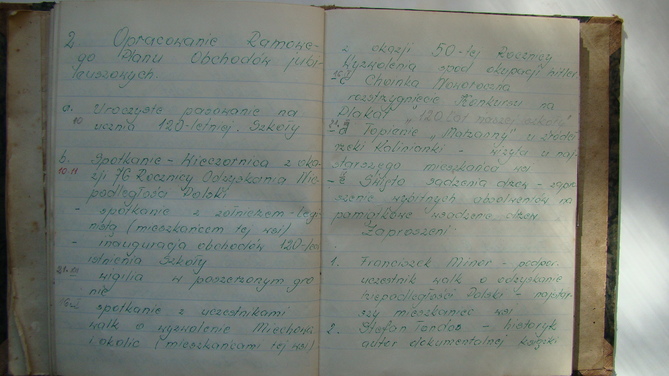 2. Opracowanie Ramowe-
go Planu Obchodów jubi-
leuszowych
a. Uroczyste pasowanie na
10 ucznia 120-letniej Szkoły
b. Spotkanie - Wieczornica z oka-
10.11 zji 76 Rocznicy Odzyskania Nie-
podległości Polski
- spotkanie z żołnierzem-legi-
nistą (mieszkańcem tej wsi)
- inauguracja obchodów 120-lec
istnienia Szkoły
wigilia w poszerzonym gro
nie
spotkanie z uczestnikami
walk o wyzwolenie Miechowa
i okolic (mieszkańcami tej wsi)
z okazji 50-tej Rocznicy
Wyzwolenia spod okupacji hitler.
c Choinka Noworoczna
rozstrzygnięcie Konkursu na
Plakat "120 lat naszej szkoły"
d Topienie "Marzanny" u źródeł
rzeki Kalicianki - wizyta u naj-
starszego mieszkańca wsi
e Święto sadzenia drzew - zapro
szenie wybitnych absolwentów na
pamiątkowe wsadzenie drzew
Zaproszeni:
1. Franciszek Miner - podpor.
uczestnik walk o odzyskanie
niepodległości Polski - najstar
szy mieszkaniec wsi
2. Stefan - historyk
autor dokumentalnej książki